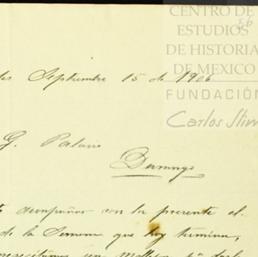 CENTRO DE
ESTUDIOS
DE HISTORIA
DE MEXICO
FUNDACIÓN
Carlos Slim
Septiembre 15 de 1906
G. Palau
Durango
acompañar con la presente el
de la Semana que hoy termina,